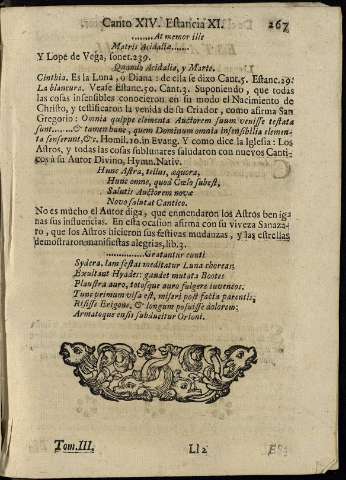 Canto XIV. Estancia XI. 267
........At memor ille
Matris Acidaliæ.......
Y Lope de Vega, sonet. 239.
Quando Acidalia, y Marte.
Cinthia. Es la Luna, o Diana: de ella se dixo Cant. 5. Estanc. 29.
La blancura. Vease Estanc. 50. Cant. 3. Suponiendo, que todas
las cosas insensibles conocieron en su modo el Nacimiento de
Christo, y testificaron la venida de su Criador, como afirma San
Gregorio: Omnia quippe elementa Auctorem suum venisse testata
sunt.......& tamen hunc, quem Dominum omnia insensibilia elemen-
ta senserunt, &c. Homil. 10. in Evang. Y como dice la Iglesia: Los
Astros, y todas las cosas sublunares saludaron con nuevos Canti-
cos à su Autor Divino, Hymn. Nativ.
Hunc Astra, tellus, æquora,
Hunc omne, quod Cælo subest,
Salutis Auctorem novæ
Novo salutat Cantico.
No es mucho el Autor diga, que enmendaron los Astros benig a-
nas sus influencias. En esta ocasion afirma con su viveza Sanaza-
ro, que los Astros hicieron sus festivas mudanzas, y las estrellas
demostraron manifiestas alegrias, lib. 3.
........Gratantur cunti
Sydera. Iam festas meditatur Luna choreas.
Exultant Hyades: gaudet mutata Bootes
Plaustra auro, totosque auro fulgere iuvencos.
Tunc primum visa est, miseri post facta parentis,
Risisse Erigone, & longum posuisse dolorem:
Armatoque ensis subducitur Orioni.
Tom. III. Ll 2